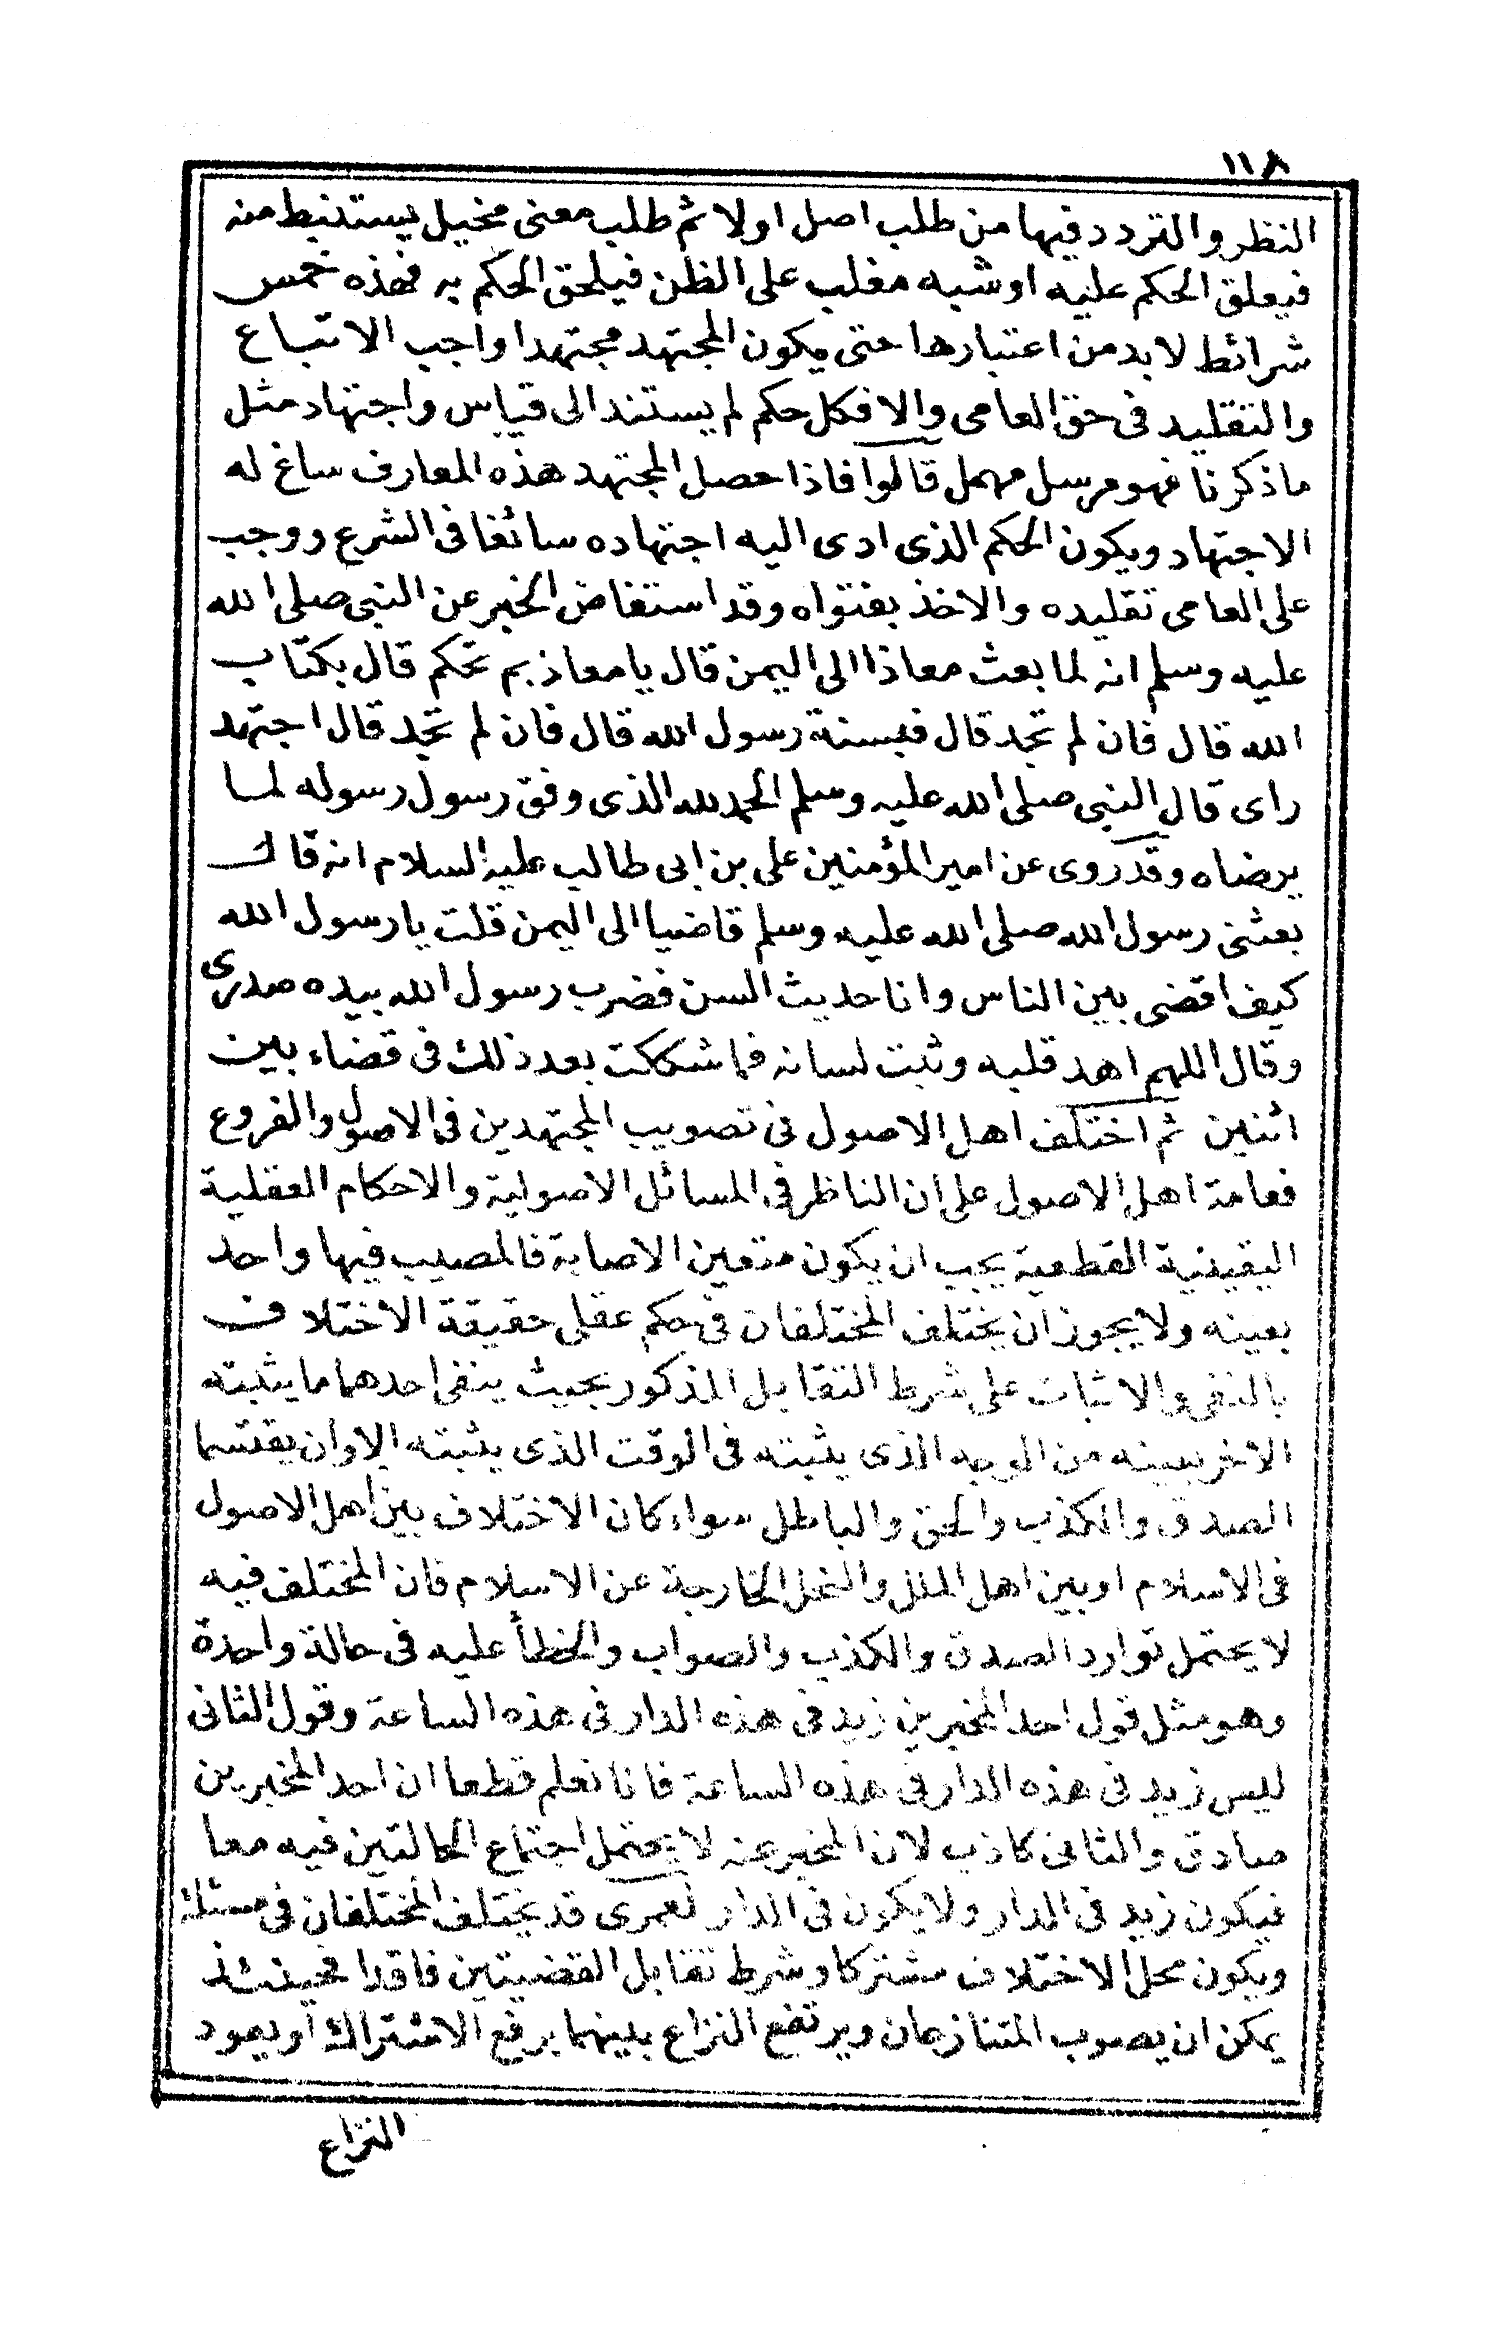 ١١٨
النظر والتردد فيها من طلب اصل اولا ثم طلب معنى مخيل يستنبط منه
فيعلق الحكم عليه او شبه مغلب على الظن فيلحق الحكم به فهذه خمس
شرائط لا بد من اعتبارها حتى يكون المجتهد مجتهدا واجب الاتباع
والتقليد فى حق العامى والا فكل حكم لم يستند الى قياس واجتهاد مثل
ما ذكرنا فهو مرسل مهمل قالوا فاذا حصل المجتهد هذه المعارف ساغ له
الاجتهاد ويكون الحكم الذى ادى اليه اجتهاده سائغا فى الشرع ووجب
على العامى تقليده والاخذ بفتواه وقد استفاض الخبر عن النبى صلى الله
عليه وسلم انه لما بعث معاذا الى اليمن قال يا معاذ بم تحكم قال بكتاب
الله قال فان لم تجد قال فبسنة رسول الله قال فان لم تجد قال اجتهد
راى قال النبى صلى الله عليه وسلم الحمد لله الذى وفق رسول رسوله لما
يرضاه وقد روى عن امير المؤمنين على بن ابى طالب عليه السلام انه قال
بعثنى رسول الله صلى الله عليه وسلم قاضيا الى اليمن قلت يا رسول الله
كيف اقضى بين الناس وانا حديث السن فضرب رسول الله بيده صدرى
وقال اللهم اهد قلبه وثبت لسانه فما شككت بعد ذلك فى قضاء بين
اثنين ثم اختلف اهل الاصول فى تصويب المجتهدين فى الاصول والفروع
فعامة اهل الاصول على ان الناظر فى المسائل الاصولية والاحكام العقلية
اليقينية القطعية يجب ان يكون متعين الاصابة فالمصيب فيها واحد
بعينه ولا يجوز ان يختلف المختلفان فى حكم عقلى حقيقة الاختلاف
بالنفى والاثبات على شرط التقابل المذكور بحيث ينفى احدهما ما يثبته
الاخر بعينه من الوجه الذى يثبته فى الوقت الذى يثبته الا وان يقتسما
الصدق والكذب والحق والباطل سواء كان الاختلاف بين اهل الاصول
فى الاسلام او بين اهل الملل والنحل الخارجة عن الاسلام فان المختلف فيه
لا يحتمل توارد الصدق والكذب والصواب والخطأ عليه فى حالة واحدة
وهو مثل قول احد المخبرين زيد فى هذه الدار فى هذه الساعة وقول الثانى
ليس زيد فى هذه الدار فى هذه الساعة فانا نعلم قطعا ان احد المخبرين
صادق والثانى كاذب لان المخبر عنه لا يحتمل اجتماع الحالتين فيه معا
فيكون زيد فى الدار ولا يكون فى الدار لعمرى قد يختلف المختلفان فى مسئلة
ويكون محل الاختلاف مشتركا وشرط تقابل القضيتين فاقدا فحينئذ
يمكن ان يصوب المتنازعان ويرتفع النزاع بينهما برفع الاشتراك او يعود
النزاع